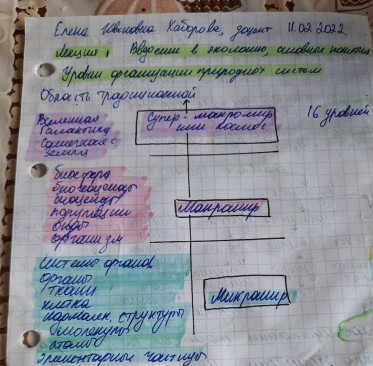 Елена Ивановна Хаброва, доцент 11.02.2022
Лекция 1 Введение в экологию, основные понятия
Уровни организации природных систем
Область традиционной
Вселенная
Галактика
Солнечная с.
Земля
Супер-макромир
или космос
16 уровней
биосфера
биогеоценозы
биоценозы
популяции
виды
организм
Макромир
Системы органов
Органы
Ткани
клетка
структуры
биомолекулы
атомы
элементарные частицы
Микромир